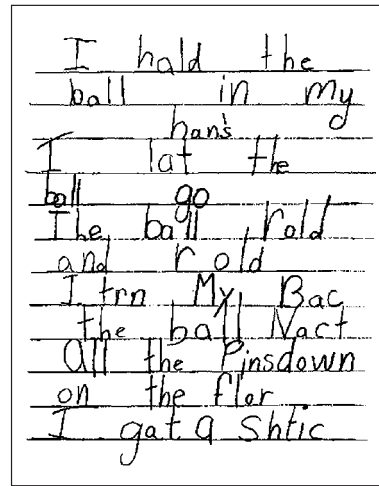 I hald the
ball in my
han's
I lat the
ball go
The ball rold
and rold
I trn My Bac
the ball Nact
all the Pinsdown
on the flor
I gat a Shtic